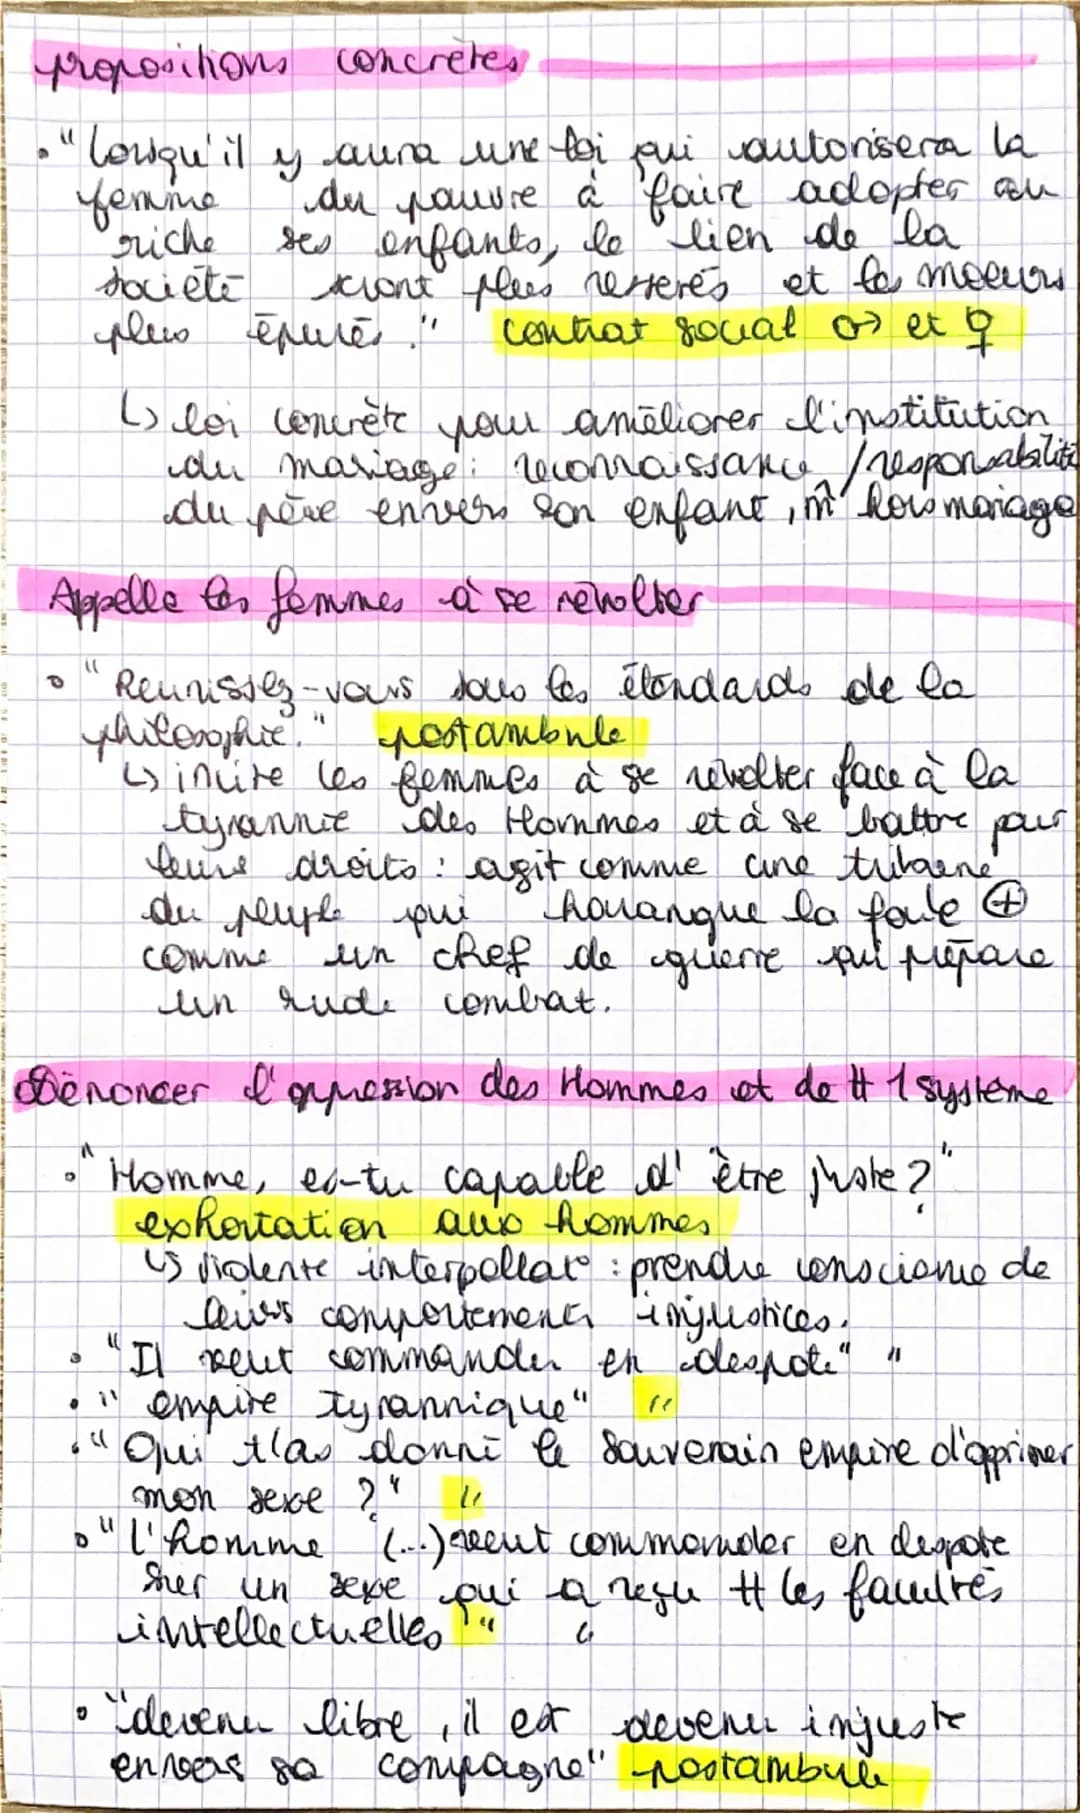 propositions concrètes
• "Lorsqu'il y aura une loi qui autorisera la
femme du pauvre à faire adopter au
riche ses enfants, le lien de la
société seront plus resserés et les moeurs
plus épurés." contrat social ♂ et ♀
↳ loi concrète pour améliorer l'institution
du mariage : reconnaissance / responsabilité
du père envers son enfant, m̂ hors mariage
Appelle les femmes à se révolter
• "Reunissez-vous sous les étendards de la
philosophie." postambule
↳ incite les femmes à se révolter face à la
tyrannie des Hommes et à se battre pour
leurs droits : agit comme une tribune
du peuple qui harangue la foule ⊕
comme un chef de guerre qui prépare
un rude combat.
Dénoncer l'oppression des Hommes et de tt 1 système
• "Homme, es-tu capable d'être juste ?"
exhortation aux hommes
↳ violente interpellat° : prendre conscience de
leurs comportements injustices.
• "Il veut commander en despote" "
• "empire tyrannique" "
• "Qui t'as donné le souverain empire d'opprimer
mon sexe ?" "
• "l'homme (...) veut commander en despote
sur un sexe qui a reçu tt les facultés
intellectuelles" "
• "devenu libre, il est devenu injuste
envers sa compagne" postambule